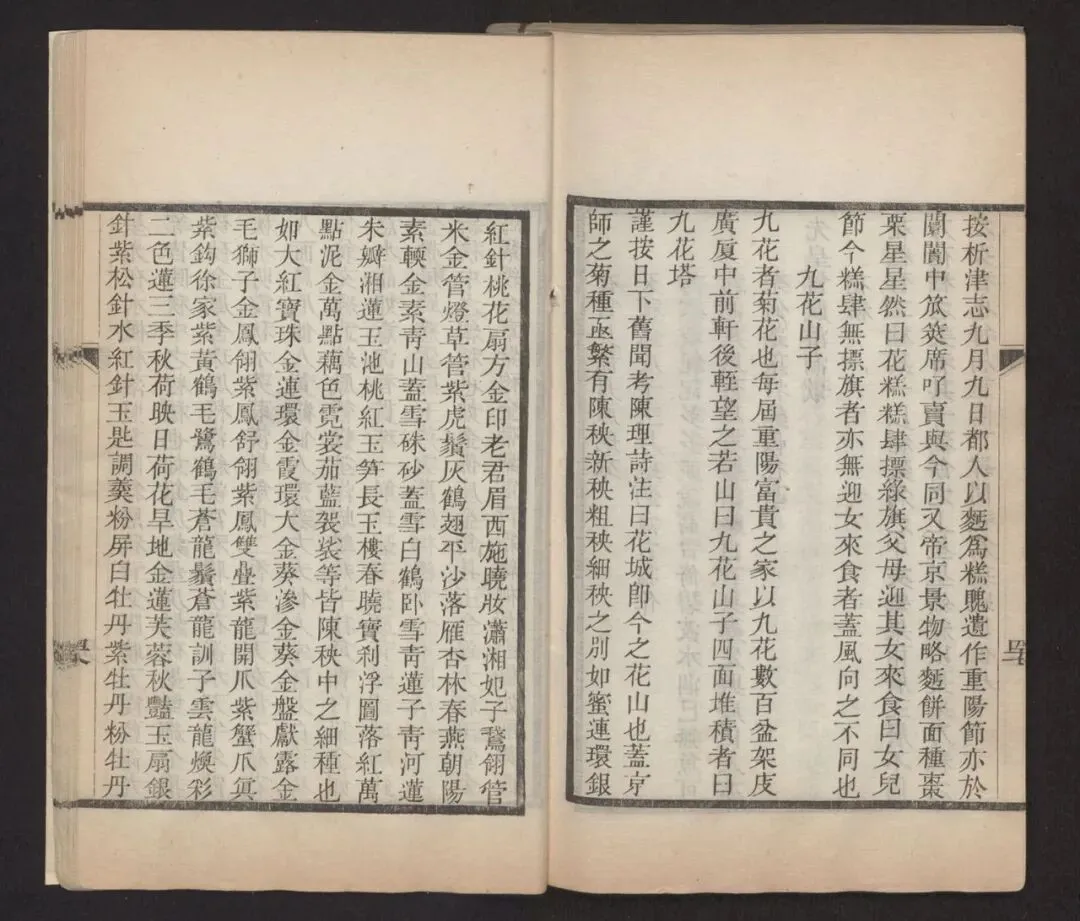 按析津志九月九日都人以麪爲糕餽遺作重陽節亦於
闤闠中笊筴席呌賣與今同又帝京景物略麪餅面種棗
栗星星然曰花糕糕肆摽綠旗父母迎其女來食曰女兒
節今糕肆無摽旗者亦無迎女來食者蓋風向之不同也
九花山子
九花者菊花也每屆重陽富貴之家以九花數百盆架庋
廣厦中前軒後輊望之若山曰九花山子四面堆積者曰
九花塔
謹按日下舊聞考陳理詩注曰花城卽今之花山也蓋京
師之菊種亟繁有陳秧新秧粗秧細秧之別如蜜連環銀
紅針桃花扇方金印老君眉西施曉妝瀟湘妃子鵞翎管
米金管燈草管紫虎鬚灰鶴翅平沙落雁杏林春燕朝陽
素輭金素靑山蓋雪硃砂蓋雪白鶴卧雪靑蓮子靑河蓮
朱瓣湘蓮玉池桃紅玉笋長玉樓春曉寶刹浮圖落紅萬
點泥金萬點藕色霓裳茄藍袈裟等皆陳秧中之細種也
如大紅寶珠金連環金霞環大金葵滲金葵金盤獻露金
毛獅子金鳳翎紫鳳舒翎紫鳳雙疊紫龍開爪紫蟹爪眞
紫鈎徐家紫黃鶴毛鷺鶴毛蒼龍鬚蒼龍訓子雲龍煥彩
二色蓮三季秋荷映日荷花旱地金蓮芙蓉秋豔玉扇銀
針紫松針水紅針玉匙調羹粉屏白牡丹紫牡丹粉牡丹